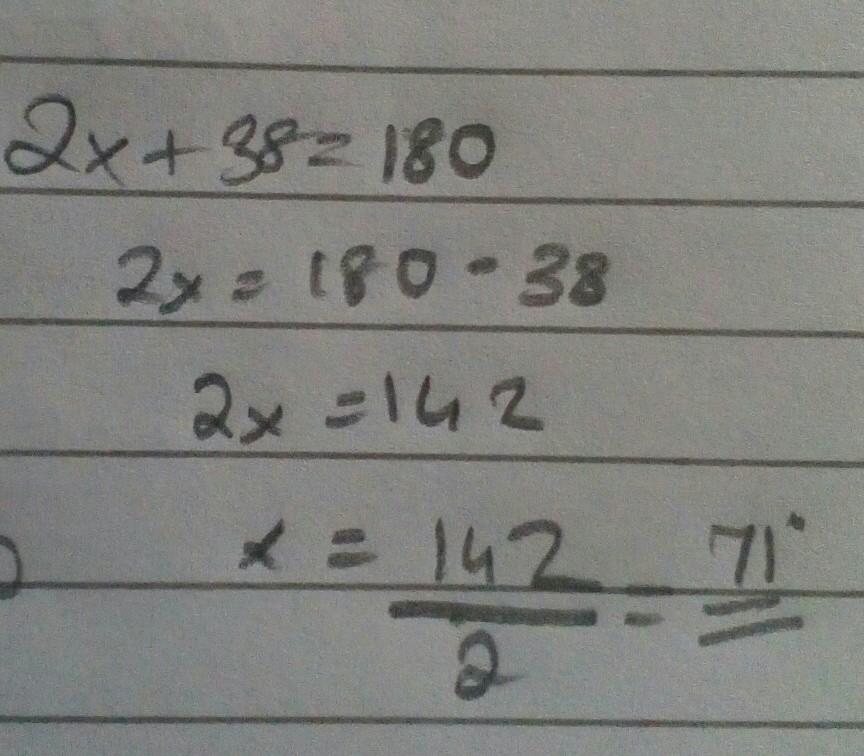 2x + 38 = 180
2x = 180 - 38
2x = 142
x = 142/2 = 71°